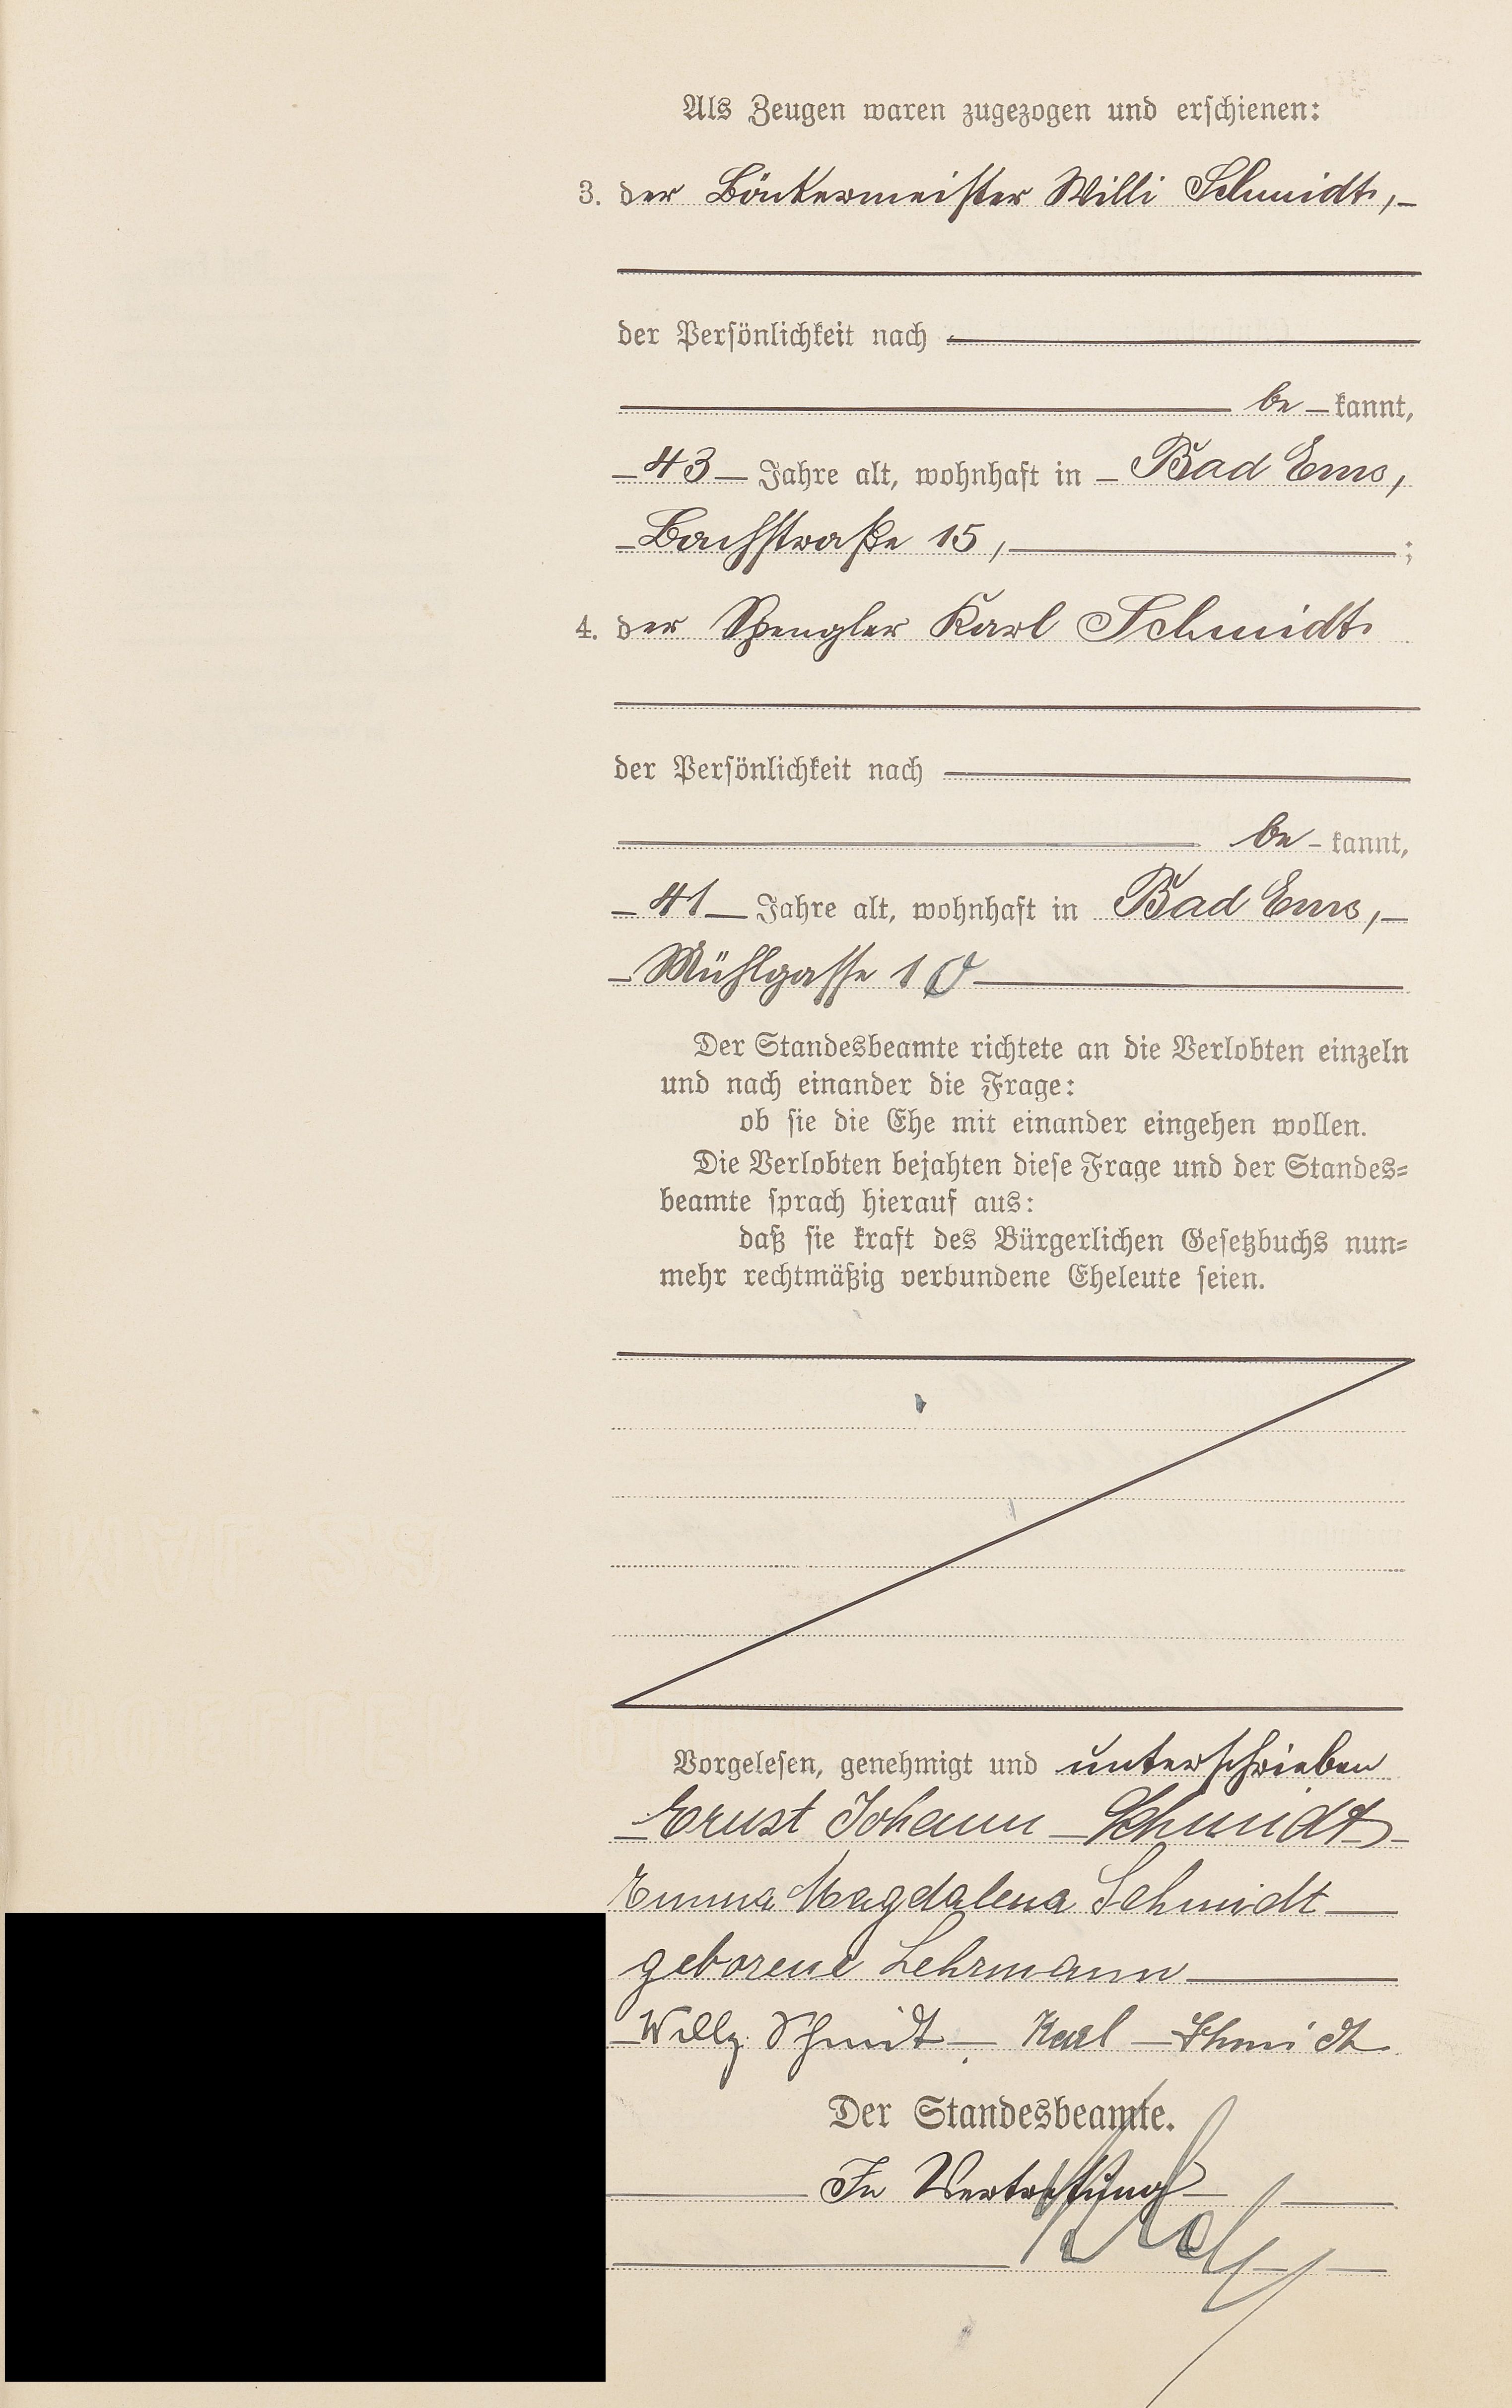 Als Zeugen waren zugezogen und erschienen:
3. der Bäckermeister Willi Schmidt,
der Persönlichkeit nach
be kannt,
43 Jahre alt, wohnhaft in Bad Ems,
Bachstraße 15, ;
4. der Spengler Karl Schmidt
der Persönlichkeit nach
be kannt,
41 Jahre alt, wohnhaft in Bad Ems,
Mühlgasse 10
Der Standesbeamte richtete an die Verlobten einzeln
und nach einander die Frage:
ob sie die Ehe mit einander eingehen wollen.
Die Verlobten bejahten diese Frage und der Standes=
beamte sprach hierauf aus:
daß sie kraft des Bürgerlichen Gesetzbuchs nun=
mehr rechtmäßig verbundene Eheleute seien.
Vorgelesen, genehmigt und unterschrieben
Ernst Johann Schmidt
Emma Magdalena Schmidt
geborene Lehrmann
Willy Schmidt Karl Schmidt
Der Standesbeamte.
In Vertretung